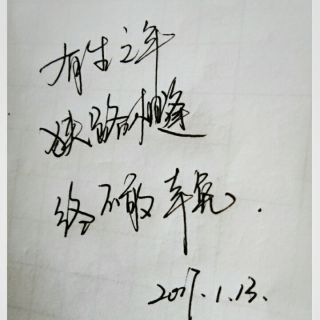 有生之年
狭路相逢
终不敢幸免.
2017.1.13.